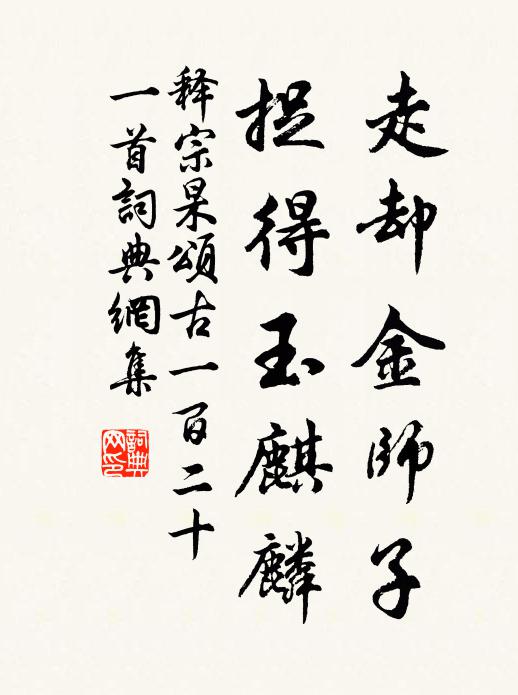 走却金師子
捉得玉麒麟
释宗杲頌古一百二十
一首詞典網集
詞典网印